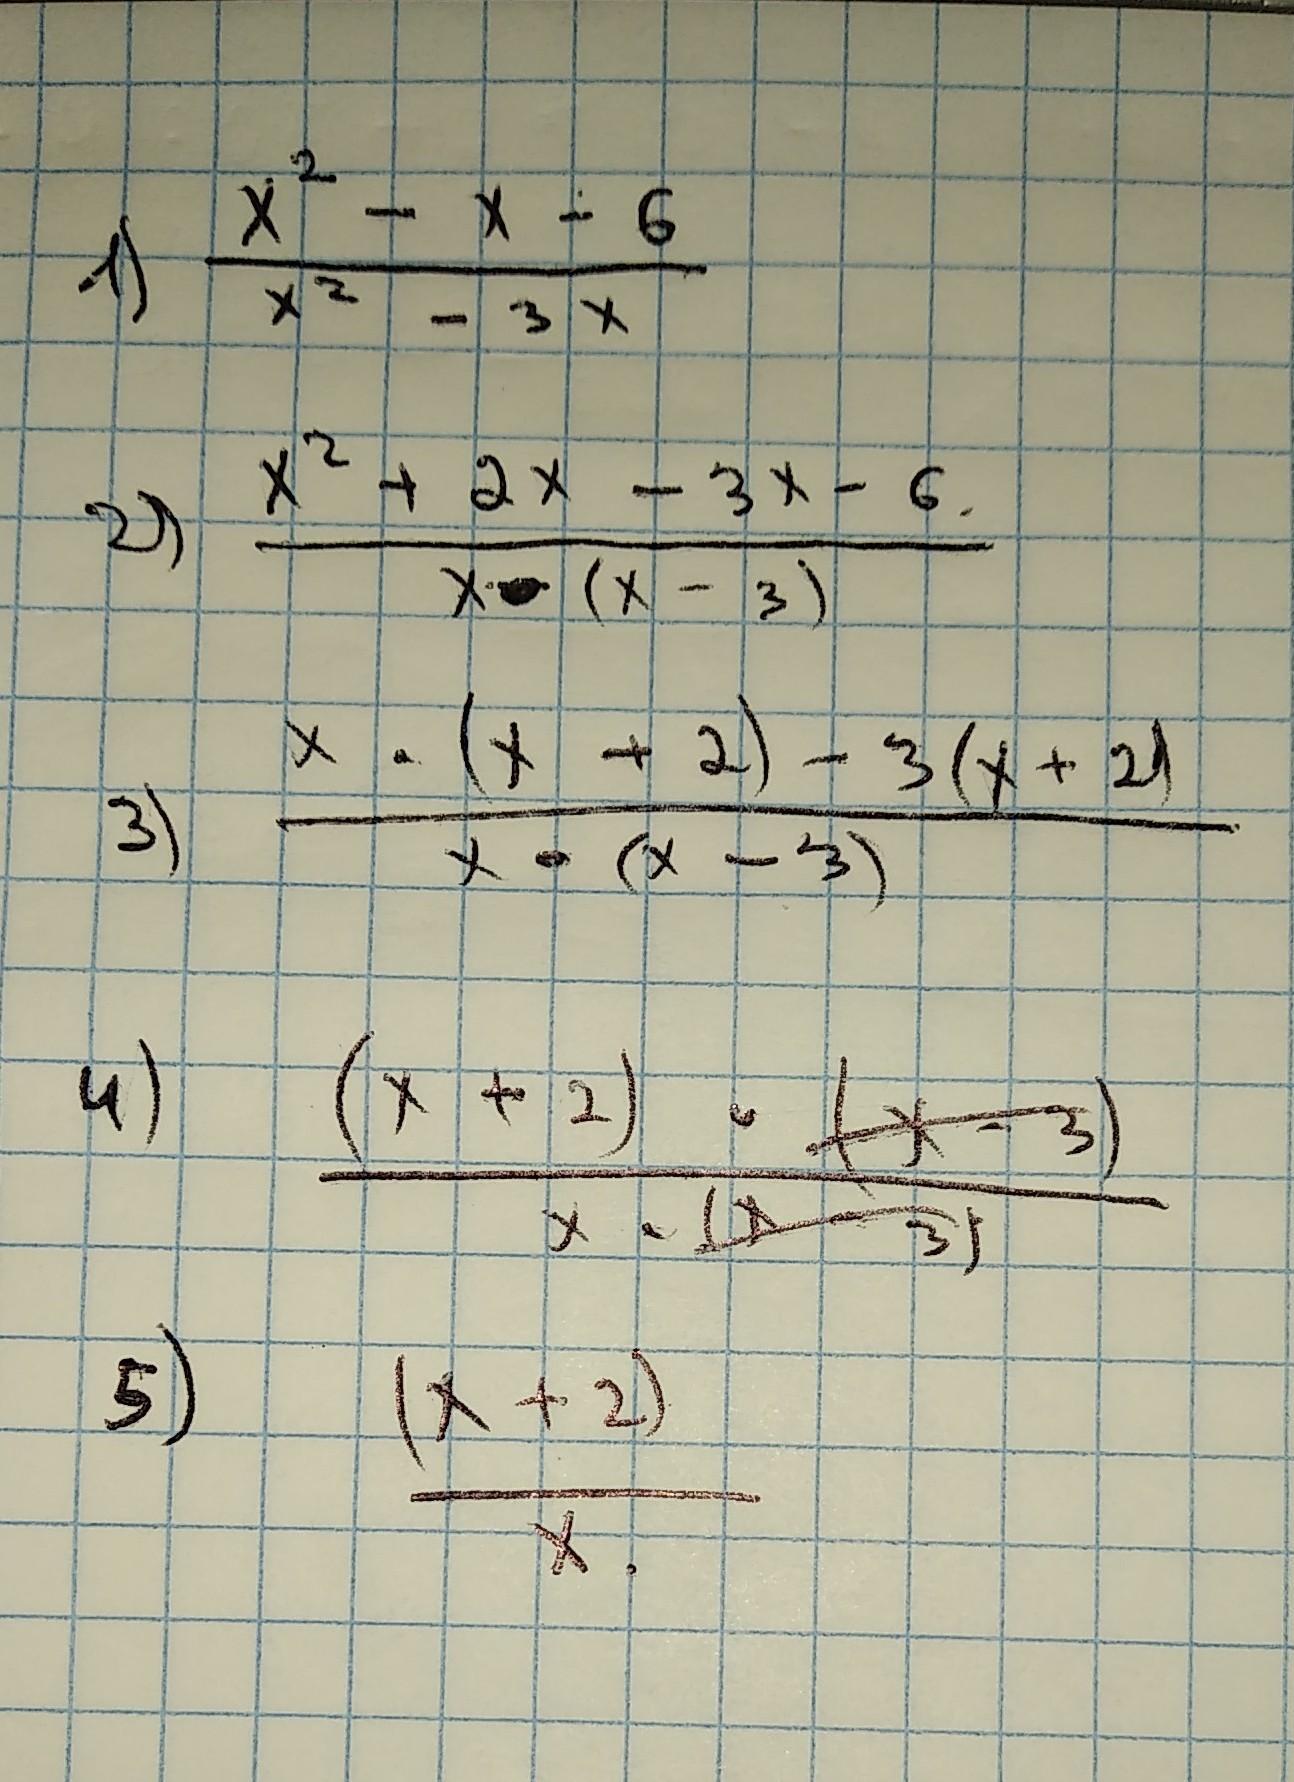 1) x² - x - 6
x² - 3x
2) x² + 2x - 3x - 6.
x • (x - 3)
3) x • (x + 2) - 3(x + 2)
x • (x - 3)
4) (x + 2) • (x - 3)
x • (x - 3)
5) (x + 2)
x.